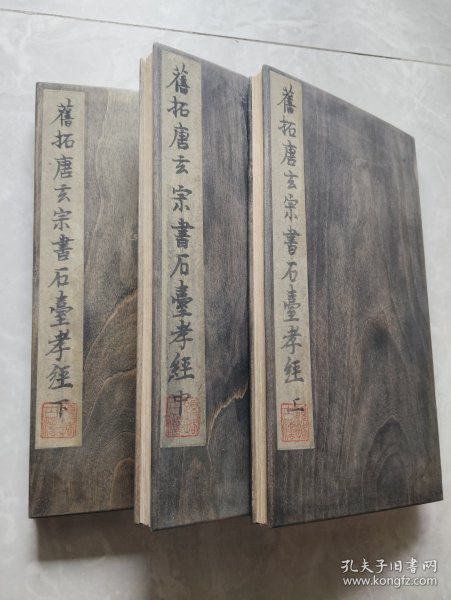 舊拓唐玄宗書石臺孝經 上
舊拓唐玄宗書石臺孝經 中
舊拓唐玄宗書石臺孝經 下
孔夫子旧书网
www.kongfz.com